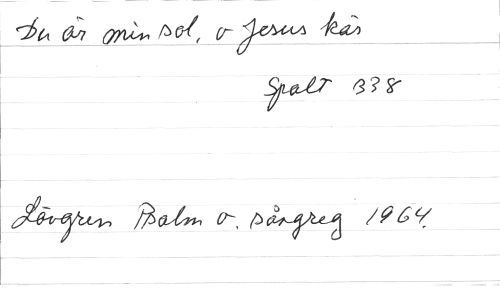 Du är min sol, o Jesus kär
Spalt 338
Lövgren Psalm o. sångreg 1964.